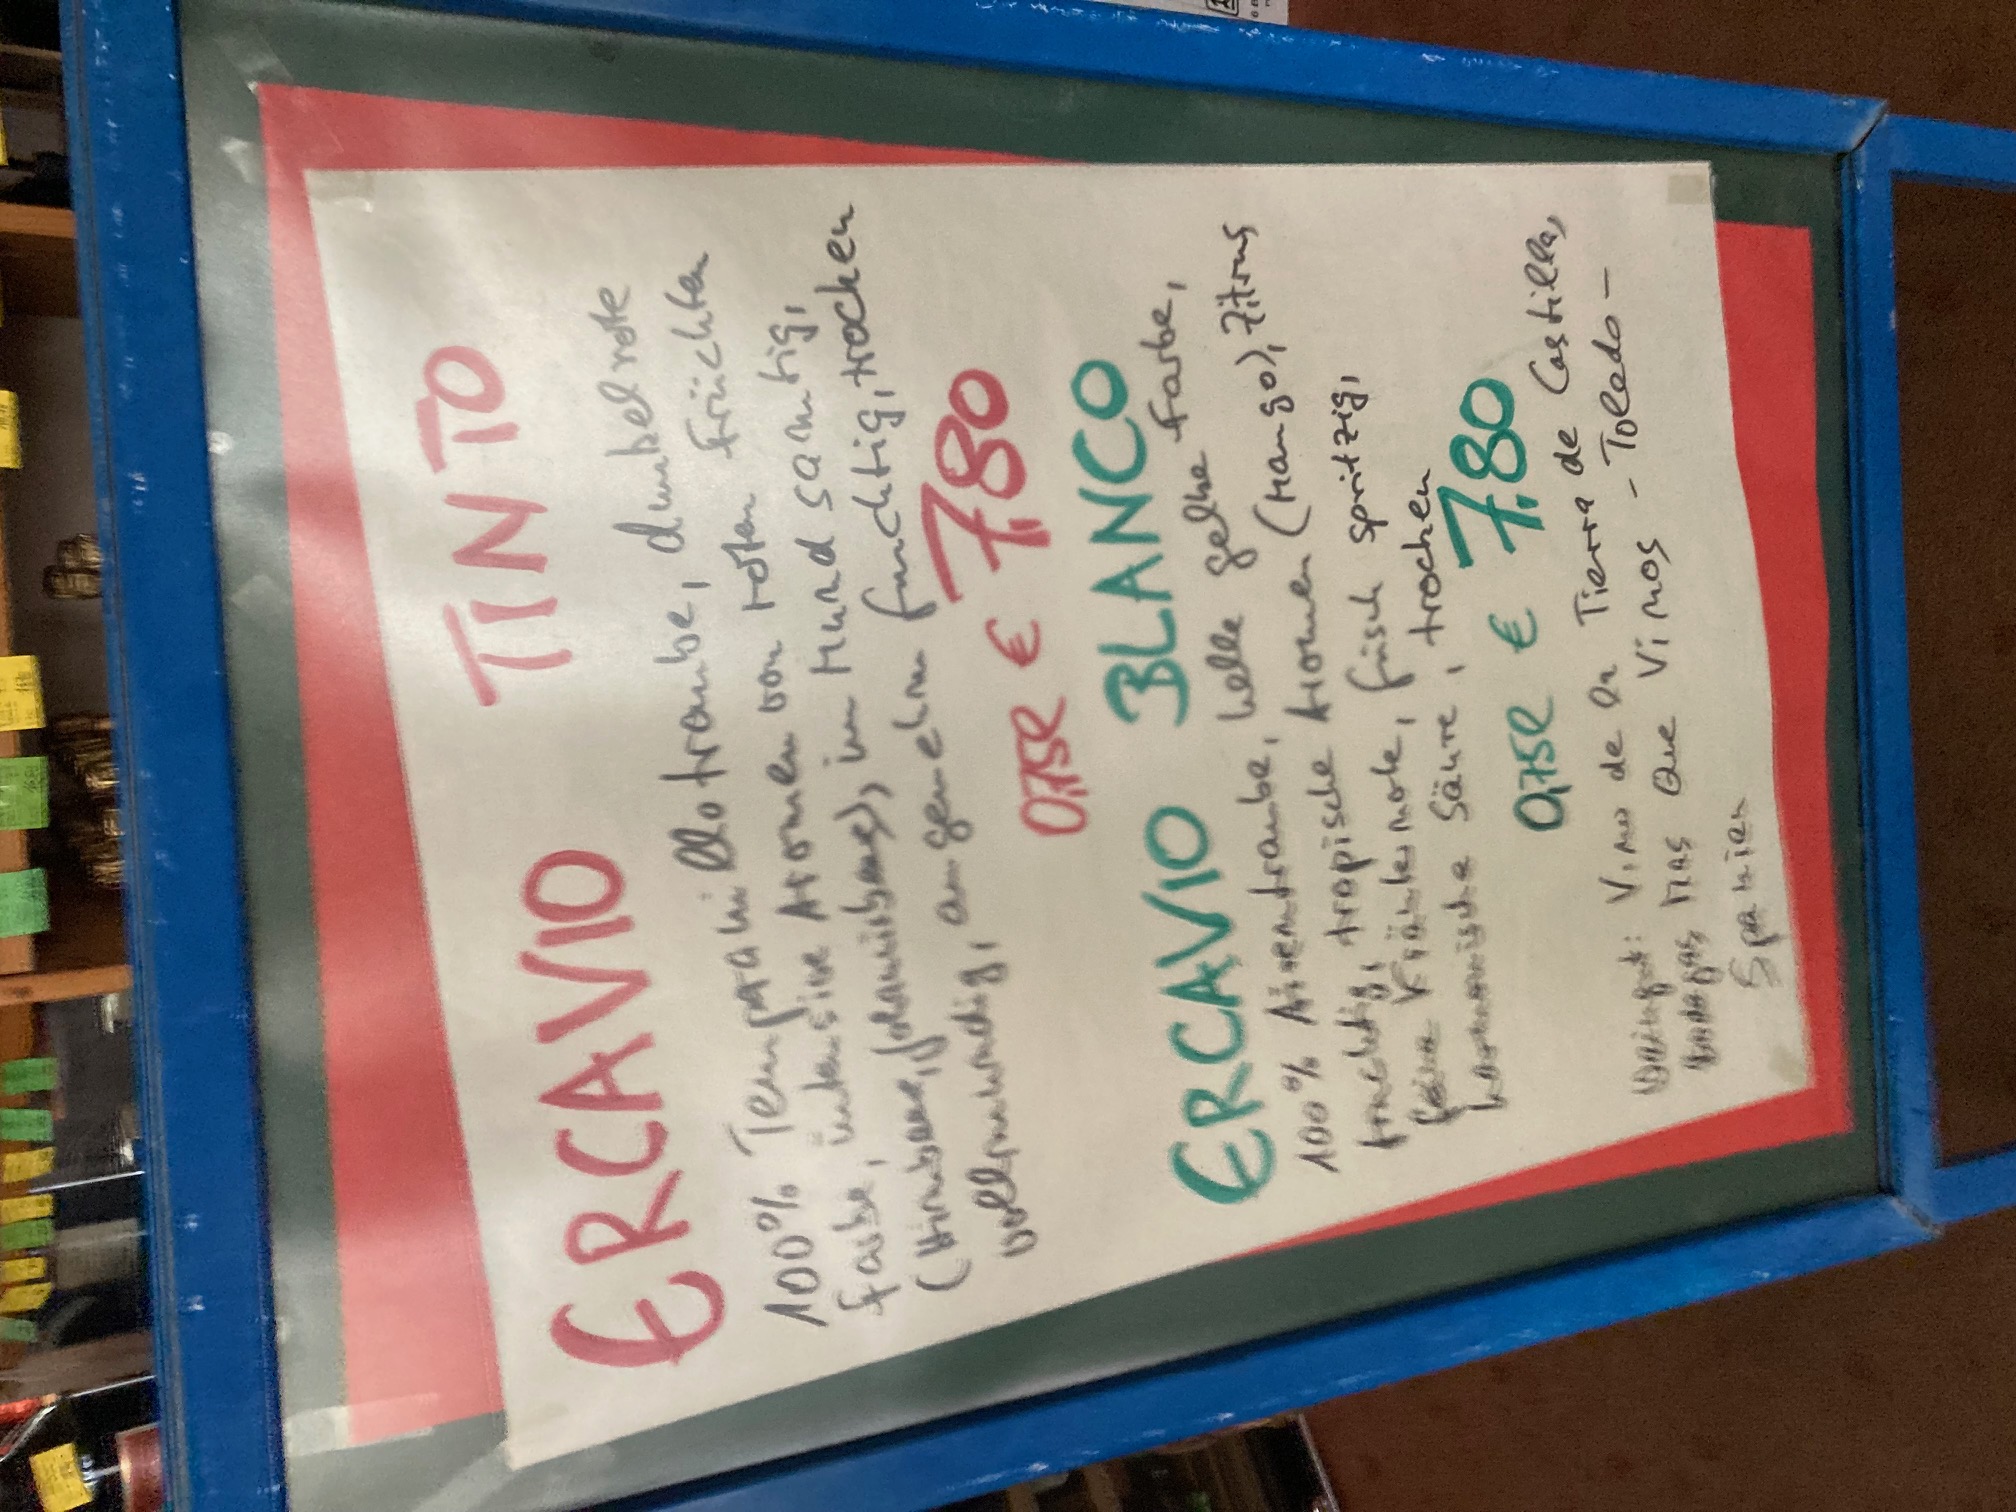 ERCAVIO TINTO
100% Tempranillotraube, dunkelrote
Farbe, intensive Aromen von roten Früchten
(Himbeere, Johannisbeere), im Mund samtig,
vollmundig, angenehm fruchtig, trocken
0,75l € 7,80
ERCAVIO BLANCO
100% Airentraube, helle gelbe Farbe,
fruchtig, tropische Aromen (Mango), Zitrus
feine Kräuternote, frisch spritzig,
harmonische Säure, trocken
0,75l € 7,80
Weingut: Vino de la Tierra de Castilla,
Bodegas Mas Que Vinos - Toledo -
Spanien